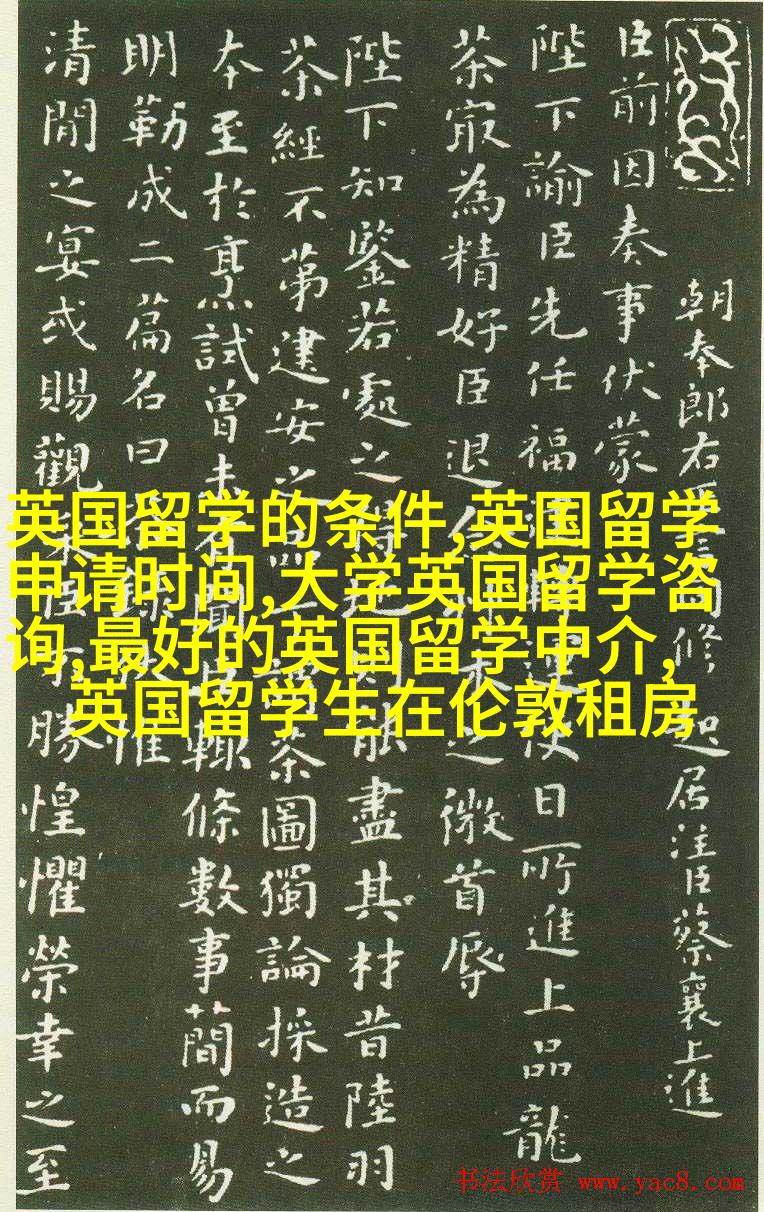 朝奉郎右言同修起居注臣蔡襄上進
臣前因奏事伏蒙
陛下諭臣先任福運使日所進上品龍
茶最為精好臣退之微首辱
陛下知鑒若處之得則能盡其材昔陸羽
茶經不第建安之品謂茶圖獨論採造之
本至於烹試曾未有聞臣輒條數事簡而易
明勒成二篇名曰惟
清閒之宴或賜觀采臣不勝惶懼榮幸之至
英国留学的条件,英国留学
申请时间,大学英国留学咨
询,最好的英国留学中介,
英国留学生在伦敦租房
书法欣赏 www.yac8.com